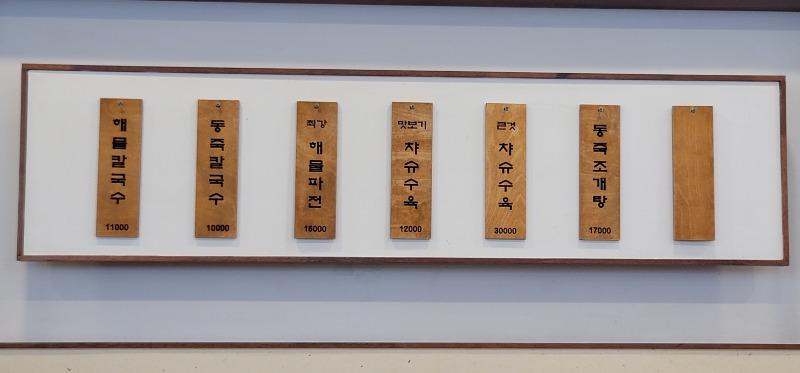 해물칼국수
11000
동죽칼국수
10000
최강
해물파전
16000
맛보기
챠슈수육
12000
큰것
챠슈수육
30000
동죽조개탕
17000